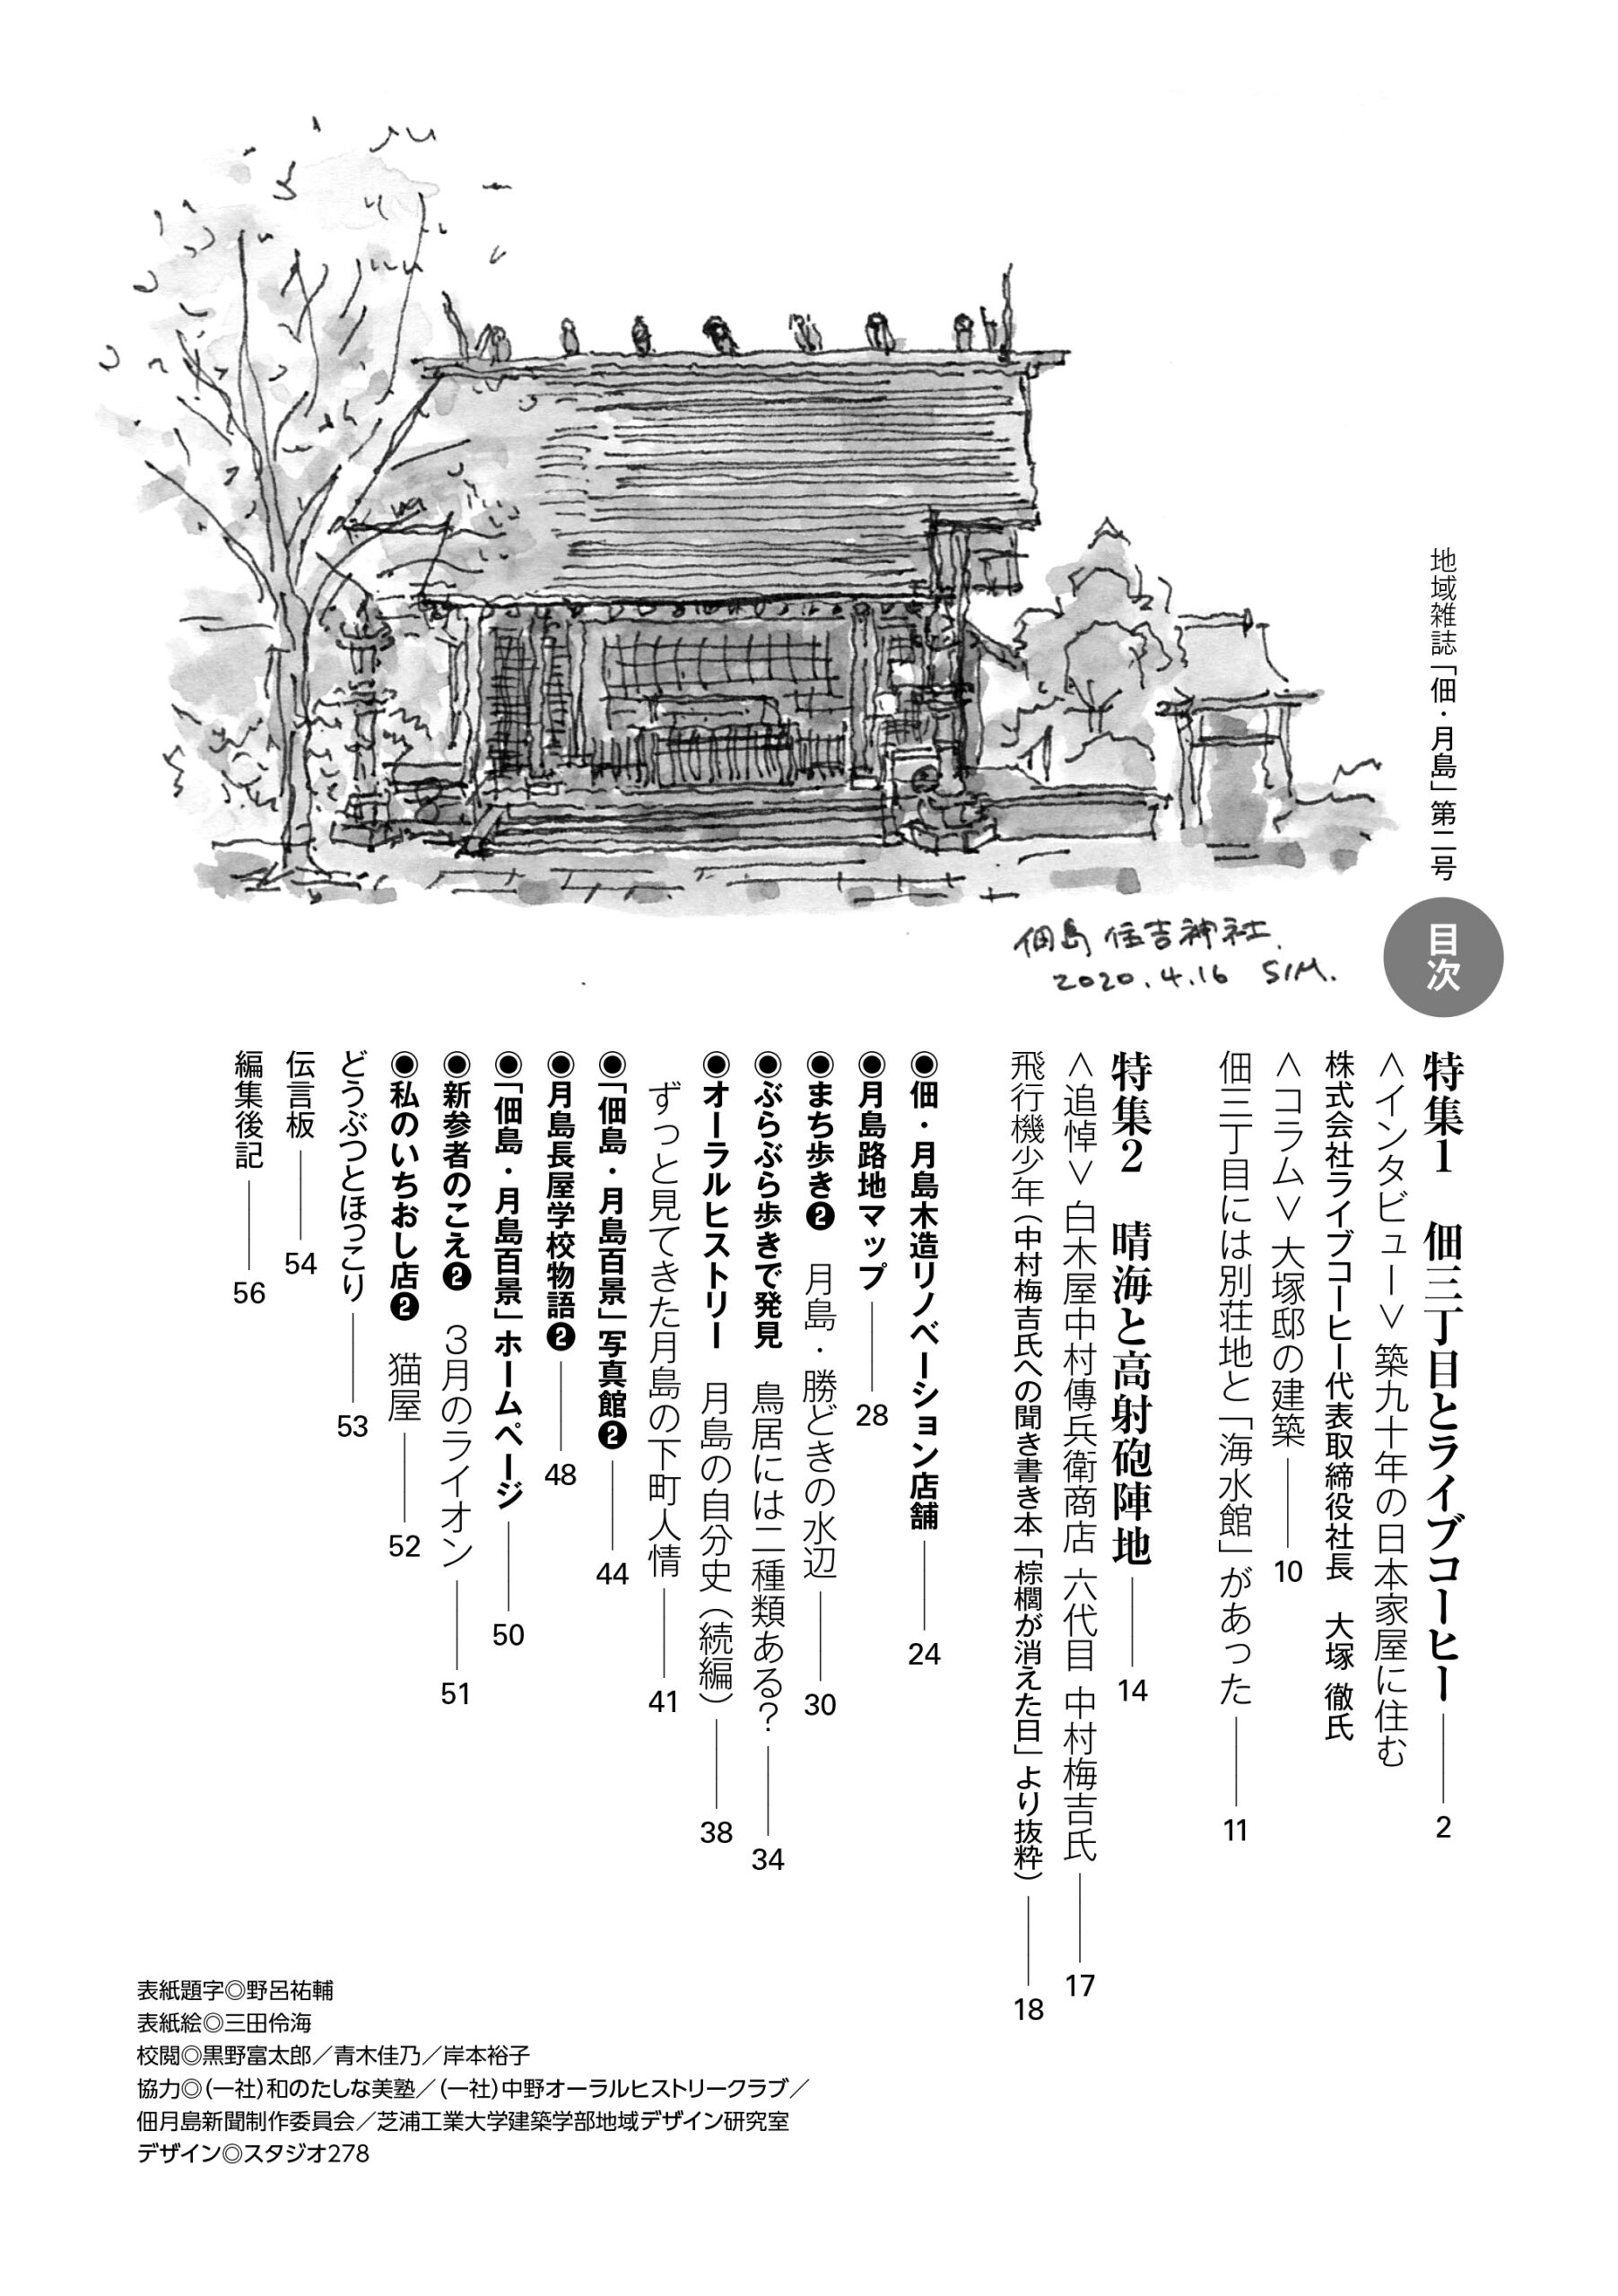 地域雑誌「佃・月島」第二号
目次
佃島 住吉神社.
2020.4.16 SIM.
特集1 佃三丁目とライブコーヒー 2
＜インタビュー＞ 築九十年の日本家屋に住む
株式会社ライブコーヒー代表取締役社長 大塚 徹氏
＜コラム＞ 大塚邸の建築 10
佃三丁目には別荘地と「海水館」があった 11
特集2 晴海と高射砲陣地 14
＜追悼＞ 白木屋中村傳兵衛商店 六代目 中村梅吉氏 17
飛行機少年（中村梅吉氏への聞き書き本「棕櫚が消えた日」より抜粋） 18
◉佃・月島木造リノベーション店舗 24
◉月島路地マップ 28
◉まち歩き❷ 月島・勝どきの水辺 30
◉ぶらぶら歩きで発見 鳥居には二種類ある？ 34
◉オーラルヒストリー 月島の自分史（続編） 38
ずっと見てきた月島の下町人情 41
◉「佃島・月島百景」写真館❷ 44
◉月島長屋学校物語❷ 48
◉「佃島・月島百景」ホームページ 50
◉新参者のこえ❷ 3月のライオン 51
◉私のいちおし店❷ 猫屋 52
どうぶつとほっこり 53
伝言板 54
編集後記 56
表紙題字◎野呂祐輔
表紙絵◎三田伶海
校閲◎黒野富太郎／青木佳乃／岸本裕子
協力◎（一社）和のたしな美塾／（一社）中野オーラルヒストリークラブ／
佃月島新聞制作委員会／芝浦工業大学建築学部地域デザイン研究室
デザイン◎スタジオ278